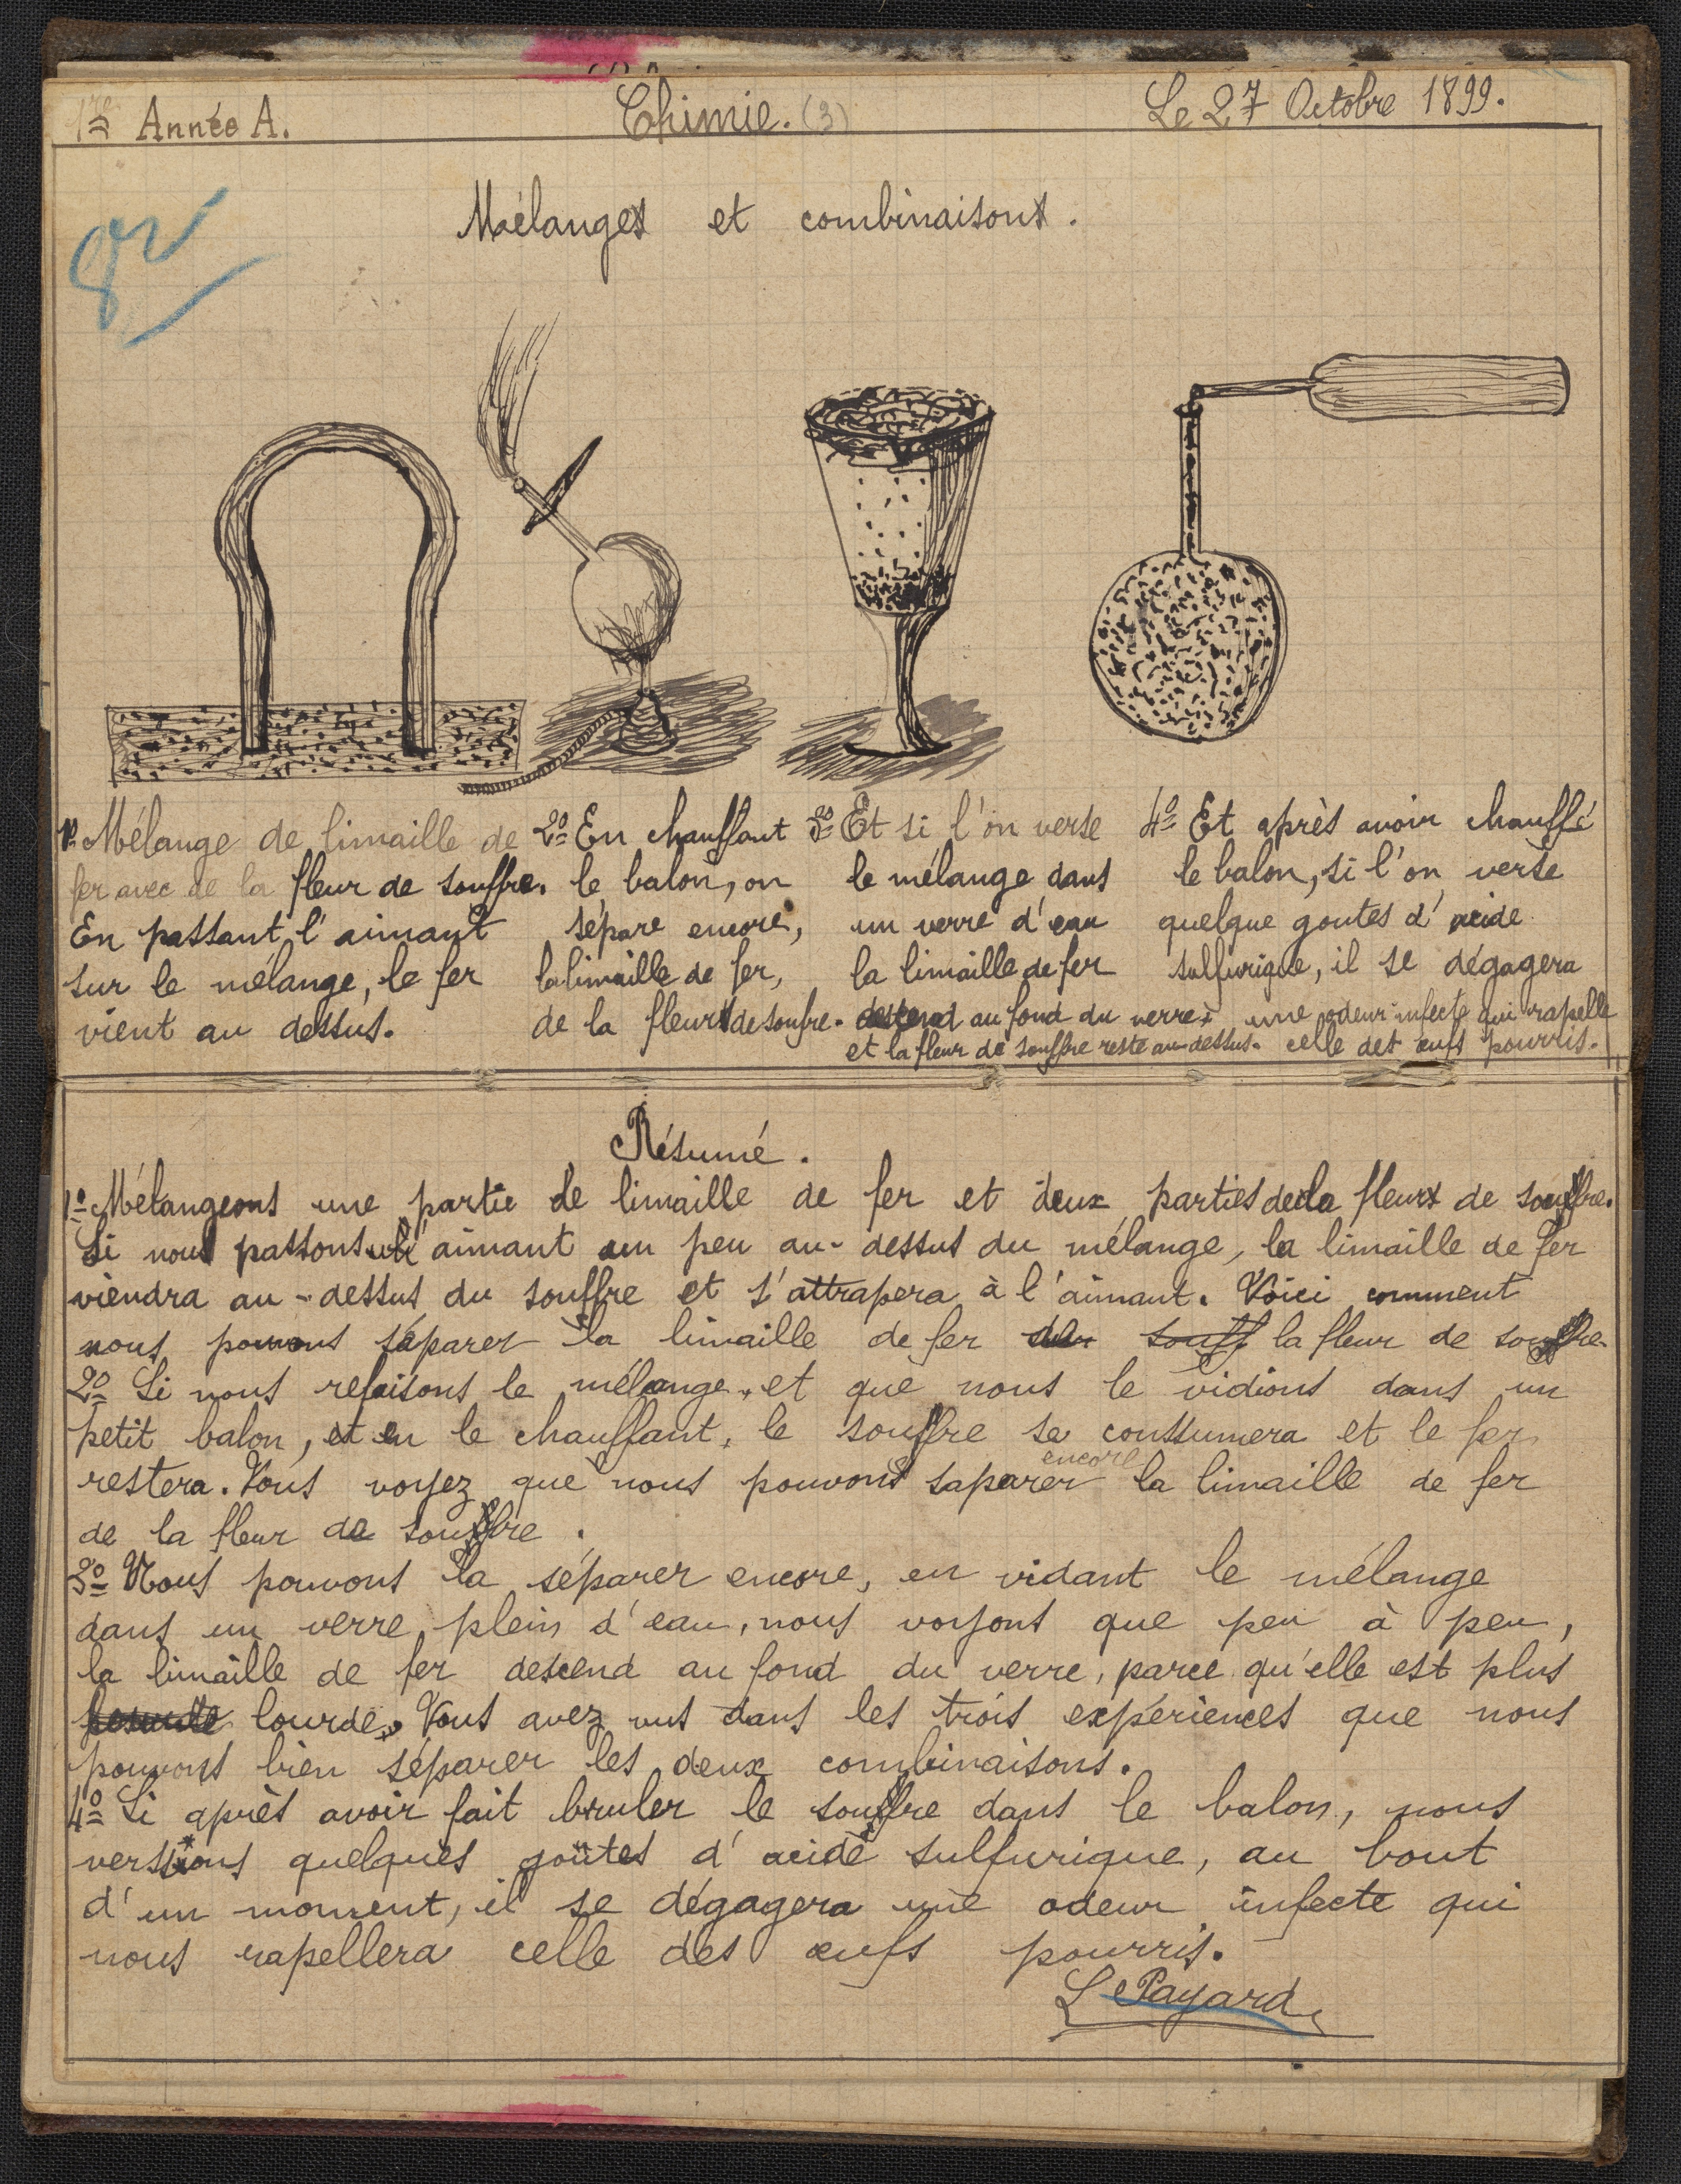 1re Année A.
Chimie. (3)
Le 27 Octobre 1899.
Mélanges et combinaisons.
1º Mélange de limaille de
fer avec de la fleur de souffre.
En passant l'aimant
sur le mélange, le fer
vient au dessus.
2º En chauffant
le balon, on
sépare encore,
la limaille de fer,
de la fleur de soufre.
3º Et si l'on verse
le mélange dans
un verre d'eau
la limaille de fer
descend au fond du verre
et la fleur de souffre reste au-dessus.
4º Et après avoir chauffé
le balon, si l'on verse
quelque goutes d'acide
sulfurique, il se dégagera
une odeur infecte qui rapelle
celle des œufs pourris.
Résumé.
1º Mélangeons une partie de limaille de fer et deux parties de la fleur de soufre.
Si nous passons l'aimant un peu au-dessus du mélange, la limaille de fer
viendra au-dessus du souffre et s'attrapera à l'aimant. Voici comment
nous pouvons séparer la limaille de fer de souff la fleur de soufre.
2º Si nous refaisons le mélange, et que nous le vidions dans un
petit balon, et en le chauffant, le soufre se conssumera et le fer
restera. Vous voyez que nous pouvons saparer encore la limaille de fer
de la fleur de soufre.
3º Nous pouvons la séparer encore, en vidant le mélange
dans un verre plein d'eau, nous voyons que peu à peu,
la limaille de fer descend au fond du verre, parce qu'elle est plus
lourde. Vous avez vus dans les trois expériences que nous
pouvons bien séparer les deux combinaisons.
4º Si après avoir fait bruler le soufre dans le balon, nous
versions quelques goûtes d'acide sulfurique, au bout
d'un moment, il se dégagera une odeur infecte qui
nous rapellera celle des œufs pourris.
L Payard